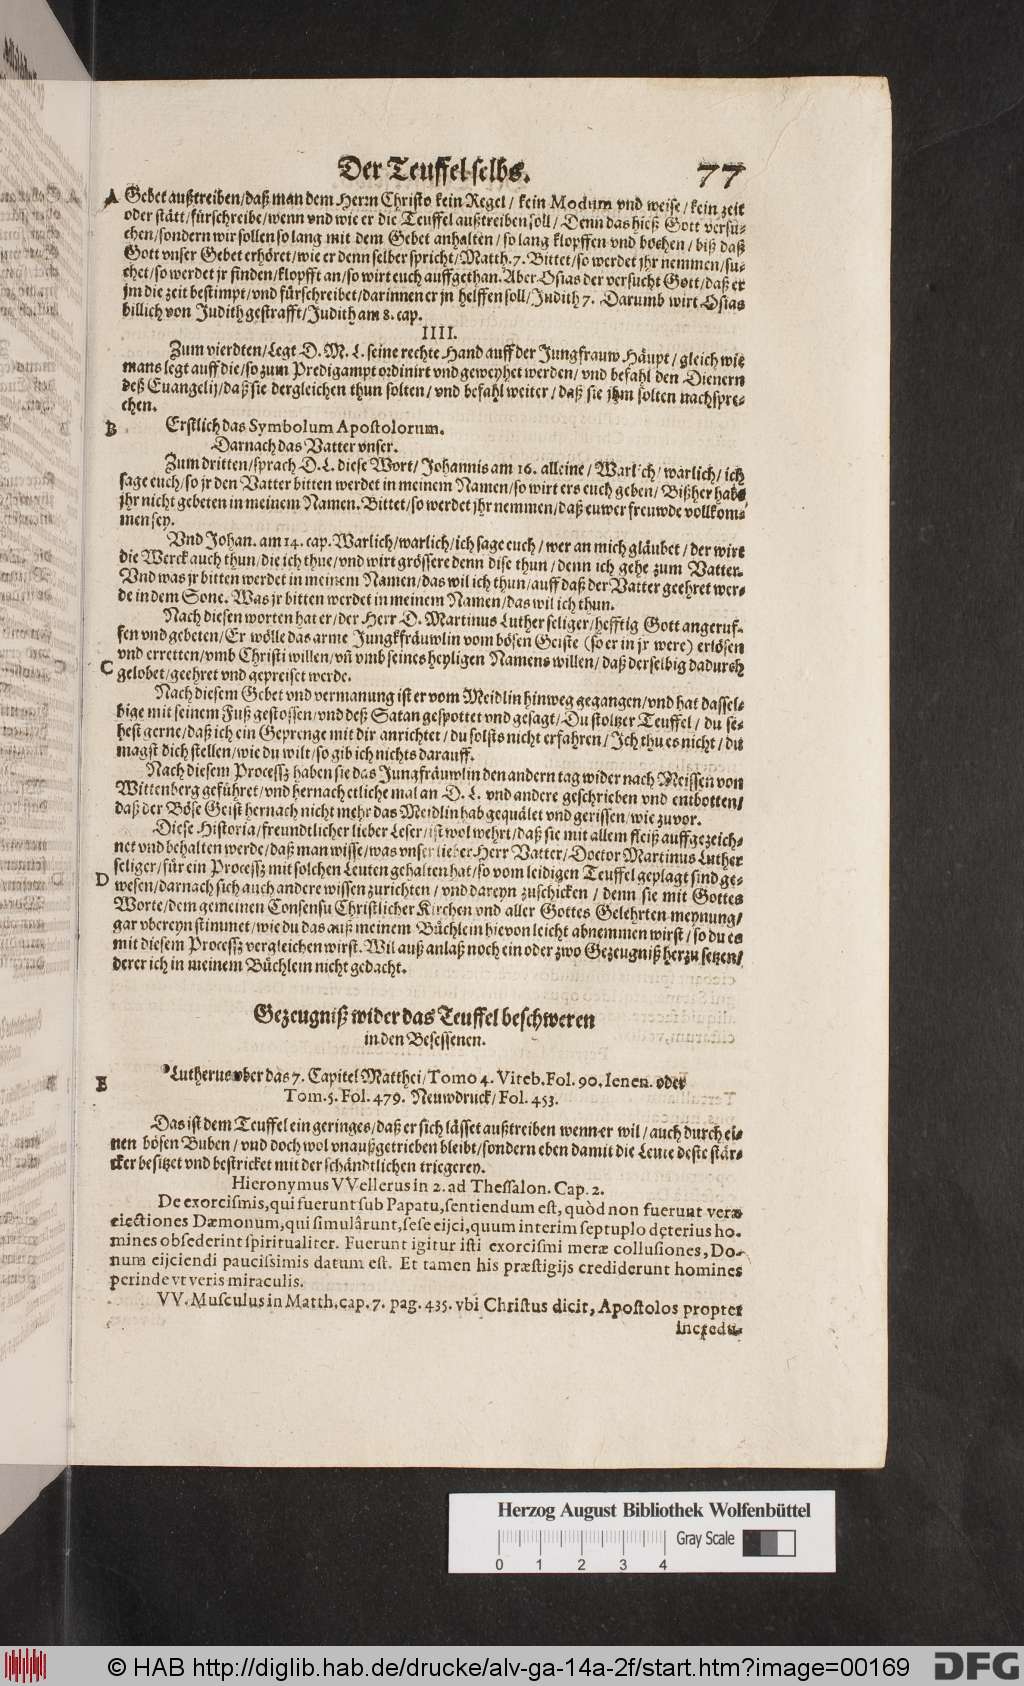 Der Teuffel selbs. 77
A Gebet außtreiben/daß man dem Herrn Christo kein Regel/ kein Modum vnd weise/ kein zeit
oder stätt/fürschreibe/wenn vnd wie er die Teuffel außtreiben soll/ Denn das hieß Gott versu-
chen/sondern wir sollen so lang mit dem Gebet anhalten/ so lang klopffen vnd bochen/ biß daß
Gott vnser Gebet erhöret/wie er denn selber spricht/Matth.7. Bittet/so werdet jhr nemmen/su-
chet/so werdet jr finden/klopfft an/so wirt euch auffgethan. Aber Osias der versucht Gott/daß er
jm die zeit bestimpt/vnd fürschreibet/darinnen er jn helffen soll/Judith 7. Darumb wirt Osias
billich von Judith gestrafft/Judith am 8. cap.
IIII.
Zum vierdten/Legt D. M. L. seine rechte Hand auff der Jungfrauw Häupt/ gleich wie
mans legt auff die/so zum Predigampt ordinirt vnd geweyhet werden/ vnd befahl den Dienern
deß Euangelij/daß sie dergleichen thun solten/ vnd befahl weiter/ daß sie jhm solten nachspre-
chen.
B Erstlich das Symbolum Apostolorum.
Darnach das Vatter vnser.
Zum dritten/sprach D.L. diese Wort/ Johannis am 16. alleine/ Warlich/ warlich/ ich
sage euch/so jr den Vatter bitten werdet in meinem Namen/so wirt ers euch geben/ Bißher habt
jhr nicht gebeten in meinem Namen. Bittet/so werdet jhr nemmen/daß euwer freuwde vollkom-
men sey.
Vnd Johan. am 14. cap. Warlich/warlich/ich sage euch/ wer an mich gläubet/ der wirt
die Werck auch thun/die ich thue/vnd wirt grössere denn dise thun/denn ich gehe zum Vatter.
Vnd was jr bitten werdet in meinem Namen/das wil ich thun/auff daß der Vatter geehret wer-
de in dem Sone. Was jr bitten werdet in meinem Namen/das wil ich thun.
Nach diesen worten hat er/der Herr D. Martinus Luther seliger/hefftig Gott angeruf-
fen vnd gebeten/Er wölle das arme Jungkfräuwlin vom bösen Geiste (so er in jr were) erlösen
vnd erretten/vmb Christi willen/vñ vmb seines heyligen Namens willen/ daß derselbig dadurch
C gelobet/geehret vnd gepreiset werde.
Nach diesem Gebet vnd vermanung ist er vom Meidlin hinweg gegangen/vnd hat dassel-
bige mit seinem Fuß gestossen/vnd deß Satan gespottet vnd gesagt/Du stoltzer Teuffel/ du se-
hest gerne/daß ich ein Geprenge mit dir anrichtet/ du solsts nicht erfahren/ Ich thu es nicht/ du
magst dich stellen/wie du wilt/so gib ich nichts darauff.
Nach diesem Processz haben sie das Jungfräuwlin den andern tag wider nach Meissen von
Wittenberg geführet/vnd hernach etliche mal an D. L. vnd andere geschrieben vnd entbotten/
daß der Böse Geist hernach nicht mehr das Meidlin hab gequälet vnd gerissen/wie zuvor.
Diese Historia/freundtlicher lieber Leser/ist wol wehrt/daß sie mit allem fleiß auffgezeich-
net vnd behalten werde/daß man wisse/was vnser lieber Herr Vatter/Doctor Martinus Luther
seliger/für ein Processz mit solchen Leuten gehalten hat/so vom leidigen Teuffel geplagt sind ge-
D wesen/darnach sich auch andere wissen zurichten/ vnd dareyn zuschicken/ denn sie mit Gottes
Worte/dem gemeinen Consensu Christlicher Kirchen vnd aller Gottes Gelehrten meynung/
gar vbereyn stimmet/wie du das auß meinem Büchlein hievon leicht abnemmen wirst/so du es
mit diesem Processz vergleichen wirst. Wil auß anlaß noch ein oder zwo Gezeugniß herzu setzen/
derer ich in meinem Büchlein nicht gedacht.
Gezeugniß wider das Teuffel beschweren
in den Besessenen.
E Lutherus vber das 7. Capitel Matthei/Tomo 4. Viteb. Fol. 90. Ienen. oder
Tom. 5. Fol. 479. Neuwdruck/Fol. 453.
Das ist dem Teuffel ein geringes/daß er sich lässet außtreiben wenn er wil/auch durch ei-
nen bösen Buben/vnd doch wol vnaußgetrieben bleibt/sondern eben damit die Leute deste stär-
cker besitzet vnd bestricket mit der schändtlichen triegerey.
Hieronymus VVellerus in 2. ad Thessalon. Cap. 2.
De exorcismis, qui fuerunt sub Papatu, sentiendum est, quòd non fuerunt veræ
eiectiones Dæmonum, qui simulârunt, sese eijci, quum interim septuplo deterius ho-
mines obsederint spiritualiter. Fuerunt igitur isti exorcismi meræ collusiones, Do-
num eijciendi paucissimis datum est. Et tamen his præstigijs crediderunt homines
perinde vt veris miraculis.
VV. Musculus in Matth. cap. 7. pag. 435. vbi Christus dicit, Apostolos propter
incredu-
Herzog August Bibliothek Wolfenbüttel
Gray Scale
0 1 2 3 4
© HAB http://diglib.hab.de/drucke/alv-ga-14a-2f/start.htm?image=00169 DFG